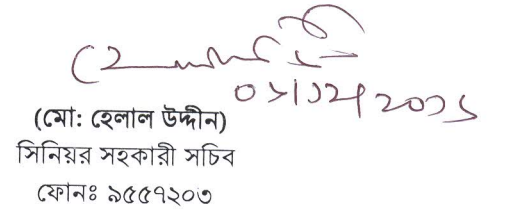 ০১/১২/২০১১
(মো: হেলাল উদ্দীন)
সিনিয়র সহকারী সচিব
ফোনঃ ৯৫৫৭২০৩